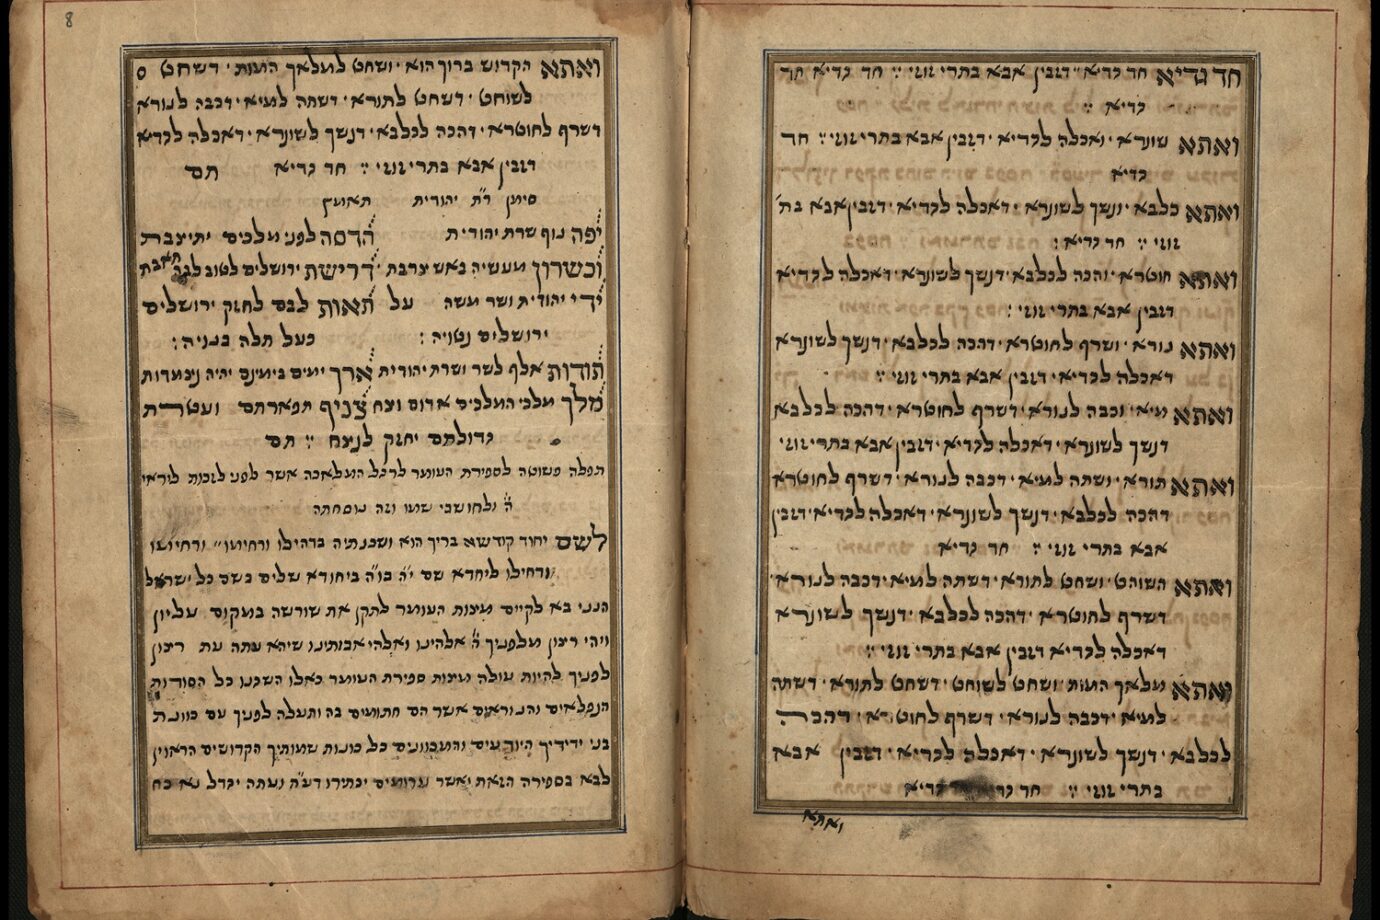 חד גדיא חד גדיא · דזבין אבא בתרי זוזי : חד גדיא חד
גדיא :
ואתא שונרא · ואכלה לגדיא · דזבין אבא בתרי זוזי : חד
גדיא
ואתא כלבא · ונשך לשונרא · דאכלה לגדיא · דזבין אבא בת'
זוזי : חד גדיא :
ואתא חוטרא · והכה לכלבא · דנשך לשונרא · דאכלה לגדיא
דזבין אבא בתרי זוזי :
ואתא נורא · ושרף לחוטרא · דהכה לכלבא · דנשך לשונרא
דאכלה לגדיא · דזבין אבא בתרי זוזי :
ואתא מיא · וכבה לנורא · דשרף לחוטרא · דהכה לכלבא
דנשך לשונרא · דאכלה לגדיא · דזבין אבא בתרי זוזי
ואתא תורא · ושתה למיא · דכבה לנורא · דשרף לחוטרא
דהכה לכלבא · דנשך לשונרא · דאכלה לגדיא · דזבין
אבא בתרי זוזי : חד גדיא
ואתא השוחט · ושחט לתורא · דשתה למיא · דכבה לנורא ·
דשרף לחוטרא · דהכה לכלבא · דנשך לשונרא
דאכלה לגדיא דזבין אבא בתרי זוזי :
ואתא מלאך המות · ושחט לשוחט · דשחט לתורא · דשתה
למיא · דכבה לנורא · דשרף לחוטרא · דהכה
לכלבא · דנשך לשונרא · דאכלה לגדיא · דזבין אבא
בתרי זוזי : חד גדיא גדיא
ואתא
8
ואתא הקדוש ברוך הוא · ושחט למלאך המות · דשחט
לשוחט · דשחט לתורא · דשתה למיא · דכבה לנורא
דשרף לחוטרא · דהכה לכלבא · דנשך לשונרא · דאכלה לגדיא
דזבין אבא בתרי זוזי : חד גדיא תם
סימן ר"ת יהודית תאומץ
יפה נוף שרת יהודית הדסה לפני מלכים יתיצבת
וכשרון מעשיה כאש צרבת דרישת ירושלים לטוב
ידי יהודית ושר משה על תאות לבם לחזק ירושלים
ירושלים נטויה : כעל תלה בנויה :
תודות אלף לשר ושרת יהודית ארך ימים בימינם יהיה ניצמדות
מלך מלכי המלכים אדום וצח צניף תפארתם ועטרת
גדולתם יחזק לנצח : תם
תפלה פשוטה לספירת העומר לרגל המלאכה אשר לפני לזכות ליראי
ה' ולחושבי שמו וזה נוסחתה
לשם יחוד קודשא בריך הוא ושכנתיה בדחילו ורחימו" ורחימו
ודחילו ליחדא שם י"ה בו"ה ביחודא שלים בשם כל ישראל
הנני בא לקיים מצות העומר לתקן את שורשה במקום עליון
ויהי רצון מלפניך ה' אלהינו ואלהי אבותינו שיהא עתה עת רצון
לפניך להיות עולה מצות ספירת העומר כאלו השגנו כל הסודות
הנפלאים והנוראים אשר הם חתומים בה ותעלה לפניך עם כוונת
בני ידידיך היודעים והמכוונים כל כונות שמותיך הקדושים הראוין
לבא בספירה הזאת ואשר יכתירו דע"ה ועתה יגדל נא כח